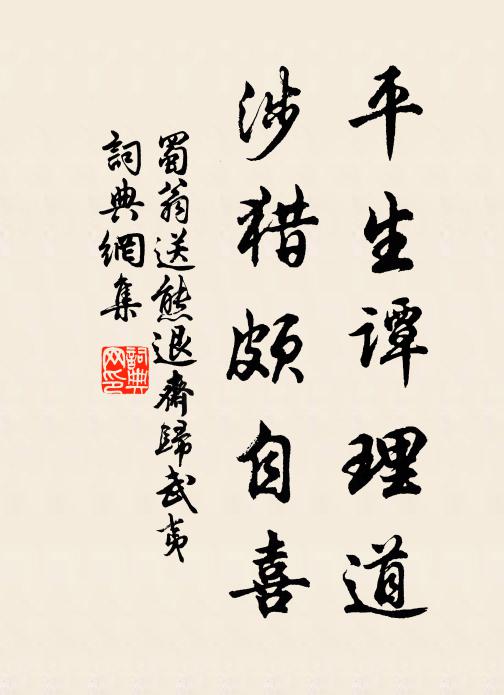 平生譚理道
涉猎頗自喜
蜀翁送熊退齋歸武夷
詞典網集
詞典網印